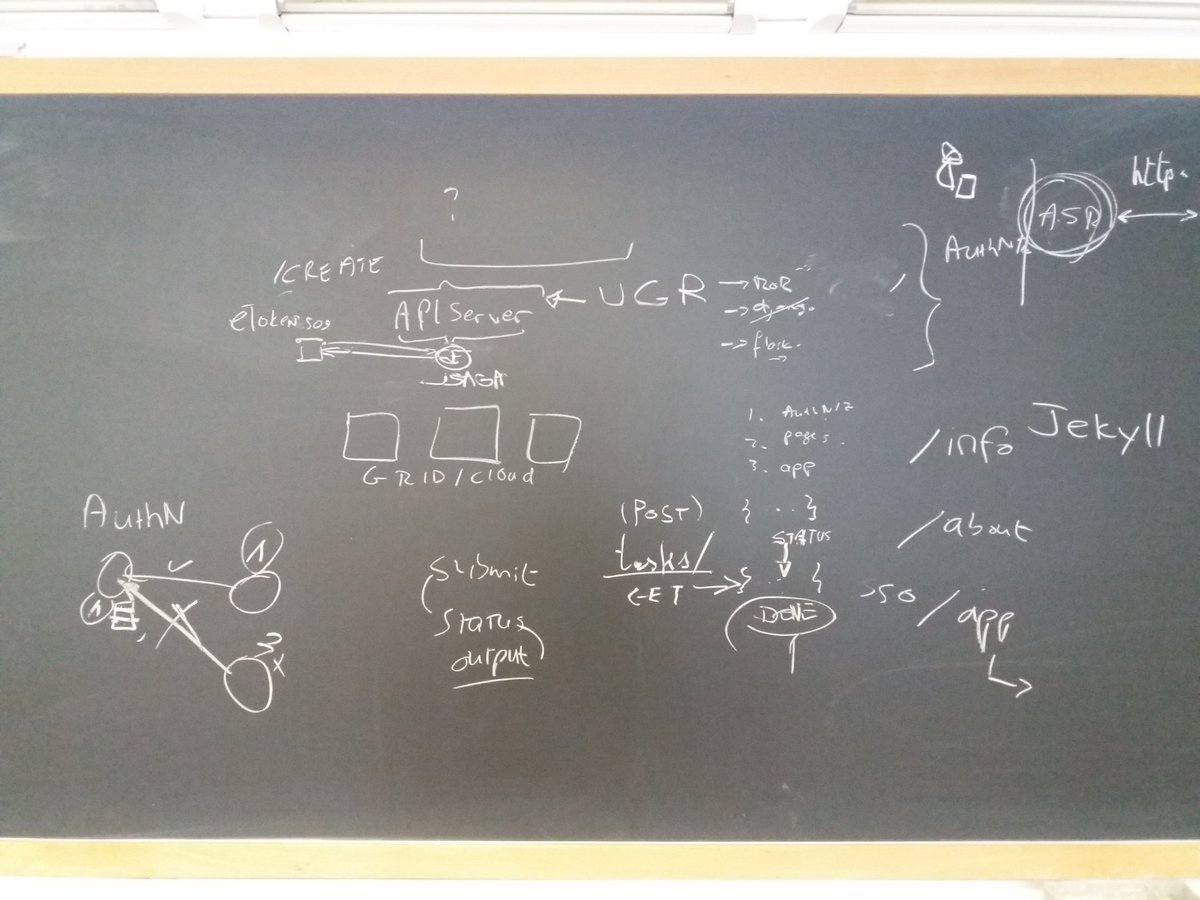 ?
http.
A.S.R
AuthN
/CREATE
UGR
→ ROR
→ django
API Server
eTokenServ
JSAGA
GRID/cloud
1. AuthN/Z
2. pages.
3. app
/info Jekyll
/about
/app
AuthN
1
1
3
x
submit
status
output
(POST) { .. }
STATUS
tasks/
GET → { .. }
DONE